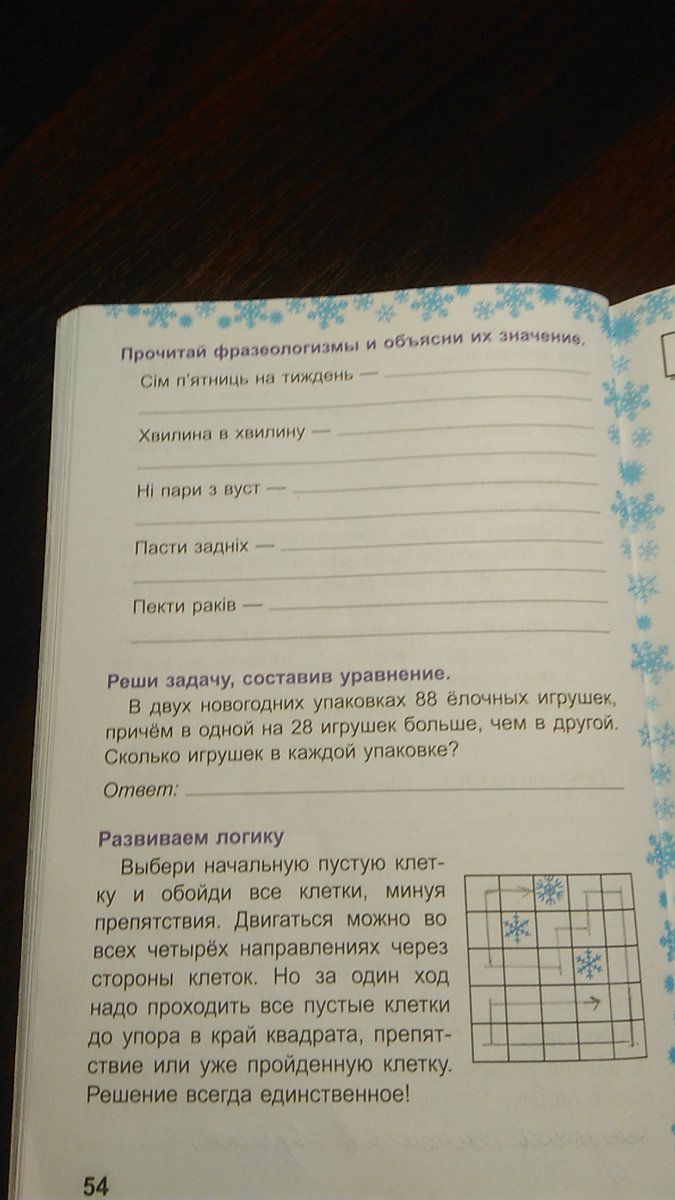 Прочитай фразеологизмы и объясни их значение.
Сім п'ятниць на тиждень —
Хвилина в хвилину —
Ні пари з вуст —
Пасти задніх —
Пекти раків —
Реши задачу, составив уравнение.
В двух новогодних упаковках 88 ёлочных игрушек,
причём в одной на 28 игрушек больше, чем в другой.
Сколько игрушек в каждой упаковке?
Ответ:
Развиваем логику
Выбери начальную пустую клет-
ку и обойди все клетки, минуя
препятствия. Двигаться можно во
всех четырёх направлениях через
стороны клеток. Но за один ход
надо проходить все пустые клетки
до упора в край квадрата, препят-
ствие или уже пройденную клетку.
Решение всегда единственное!
54